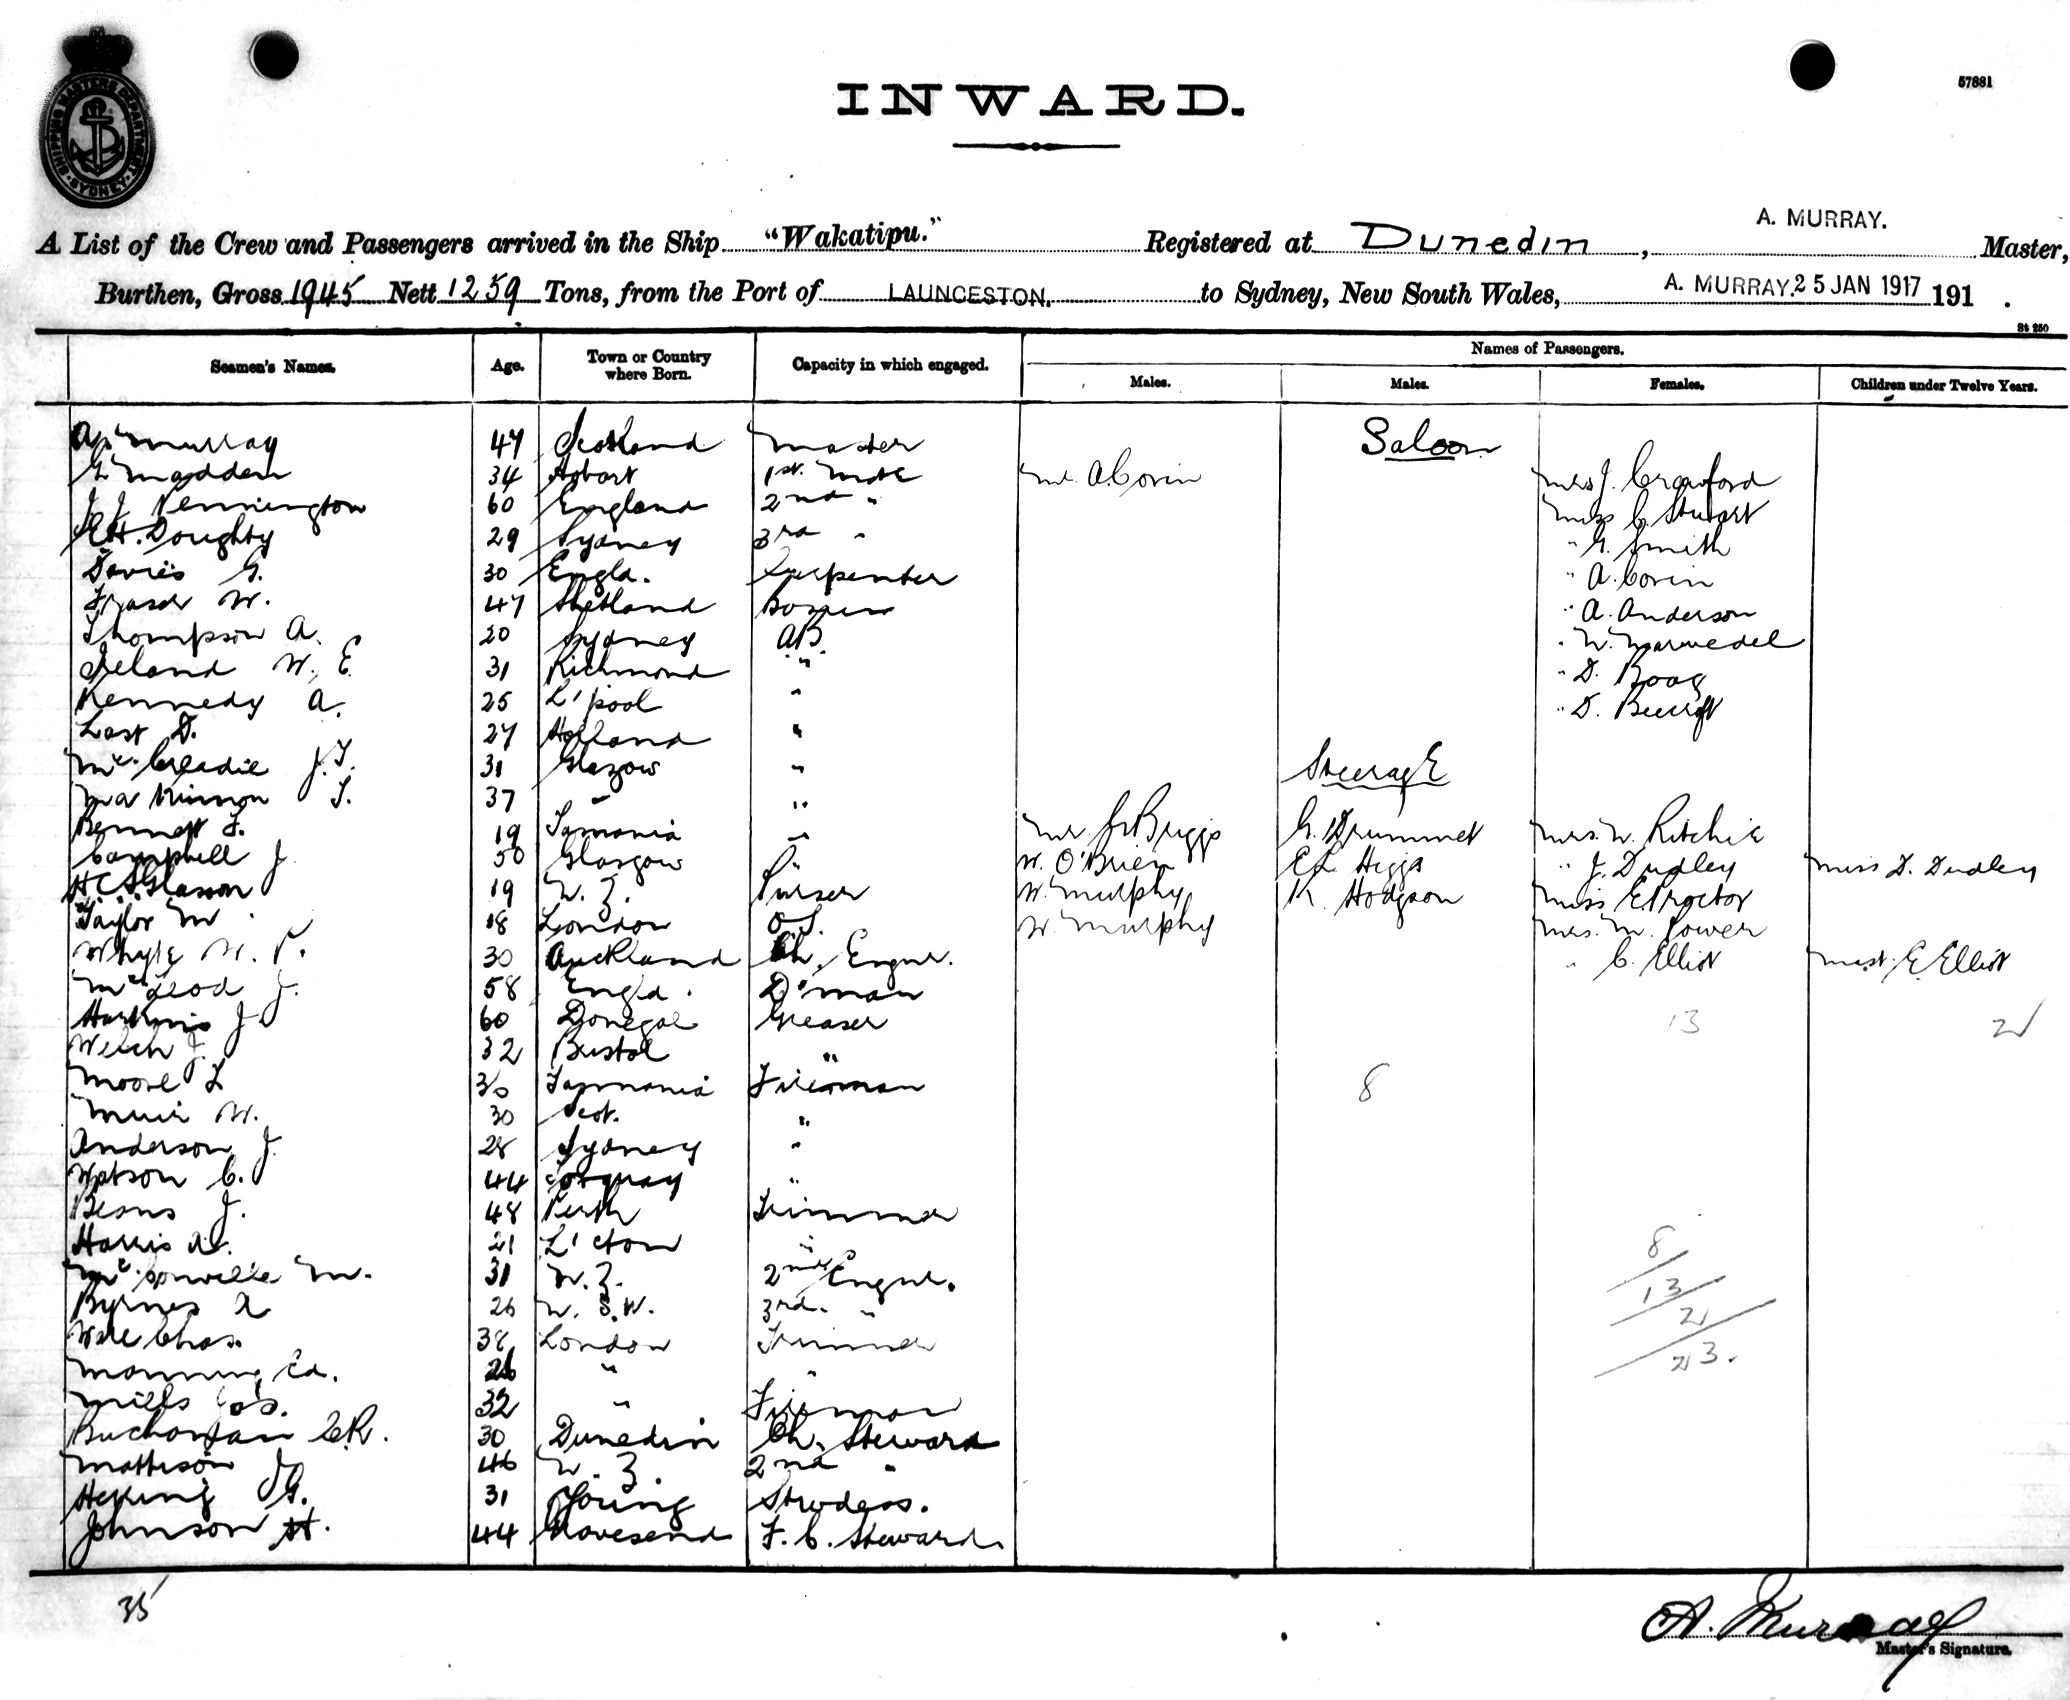 SHIPPING MASTERS DEPARTMENT
SYDNEY
57881
INWARD.
A. MURRAY.
A List of the Crew and Passengers arrived in the Ship "Wakatipu." Registered at Dunedin, Master,
Burthen, Gross 1945 Nett 1259 Tons, from the Port of LAUNCESTON. to Sydney, New South Wales, A. MURRAY. 25 JAN 1917 191 .
St 250
Seamen's Names. Age. Town or Country where Born. Capacity in which engaged. Names of Passengers.
Males. Males. Females. Children under Twelve Years.
Murray 47 Scotland Master Saloon
G. Madden 34 Hobart 1st. Mate Mr. A. Corin Mrs J. Crawford
J. J. Pennington 60 England 2nd " Miss C. Stewart
Doughty 29 Sydney 3rd " " G. Smith
Davies G. 30 Engld. Carpenter " A. Corin
Fraser W. 47 Shetland Bosun " A. Anderson
Thompson A. 20 Sydney AB " W. Marwedel
Ireland W. E. 31 Richmond " " D. Boag
Kennedy A. 25 L'pool " " D. Beecroft
Last D. 27 Holland "
McCreadie J. T. 31 Glasgow " Steerage
MacKinnon T. 37 " "
Bennett F. 19 Tasmania " Mr J. Briggs G. Drummet Mrs. W. Ritchie
Campbell J. 50 Glasgow " W. O'Brien E L Higgs " J. Dudley Miss D. Dudley
H. C. Glasson 19 N. Z. Purser W. Murphy K. Hodgson Miss E. Proctor
Taylor M 18 London O. S. W. Murphy Mrs. M. Power
Whyte W. P. 30 Auckland Ch. Engnr. " C. Elliot Mast. E. Elliot
McLeod J. 58 Engld. D'man
Harkins J. 60 Donegal Greaser 13 2
Welch J. 32 Bristol "
Moore L 30 Tasmania Fireman 8
Muir W. 30 Scot. "
Anderson J. 28 Sydney "
Watson C. 44 Torquay "
Beans J. 48 Perth Trimmer
Harris 21 L'cton "
Mc. M. 31 N. Z. 2nd Engnr. 8
Byrnes 26 N. S. W. 3rd. " 13
Chas. 38 London Trimmer 2
Manning Ed. 26 " " 23.
Mills Jas. 32 " Fireman
Buchanan C.R. 30 Dunedin Ch. Steward
Mattison J 46 N. Z. 2nd "
G. 31 Young Strwdess.
Johnson H. 44 Gravesend F. C. Steward.
35
A. Murray
Master's Signature.